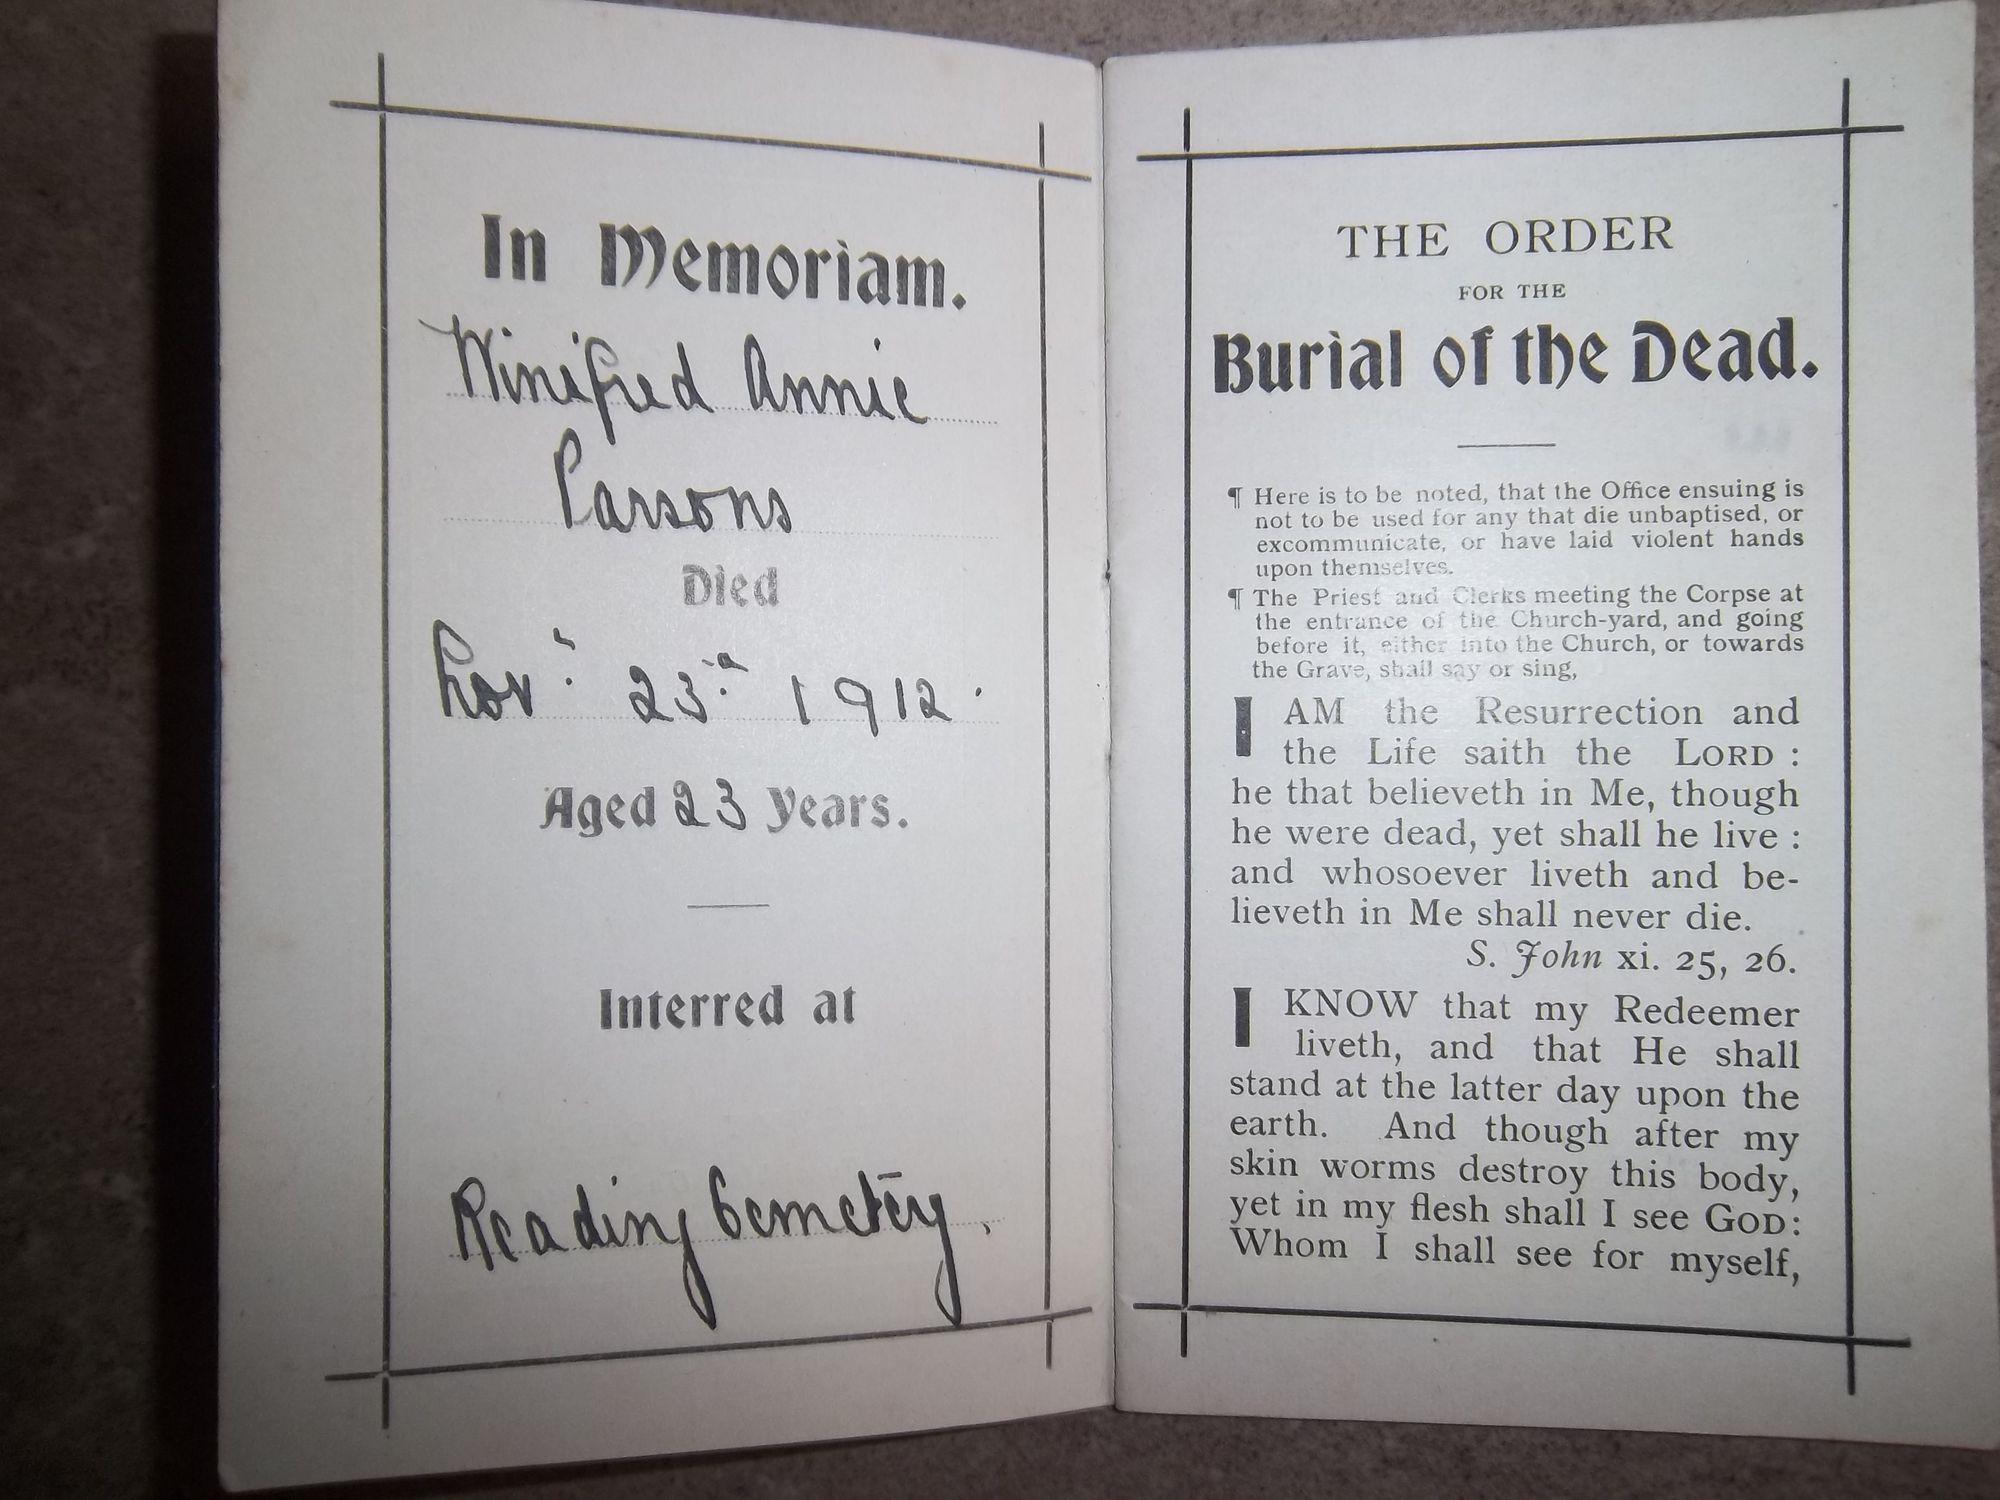 In Memoriam.
Winifred Annie
Parsons
Died
Nov: 23.d 1912.
Aged 23 Years.
Interred at
Reading Cemetery.
THE ORDER
FOR THE
Burial of the Dead.
¶ Here is to be noted, that the Office ensuing is
not to be used for any that die unbaptised, or
excommunicate, or have laid violent hands
upon themselves.
¶ The Priest and Clerks meeting the Corpse at
the entrance of the Church-yard, and going
before it, either into the Church, or towards
the Grave, shall say or sing,
I AM the Resurrection and
the Life saith the LORD :
he that believeth in Me, though
he were dead, yet shall he live :
and whosoever liveth and be-
lieveth in Me shall never die.
S. John xi. 25, 26.
I KNOW that my Redeemer
liveth, and that He shall
stand at the latter day upon the
earth. And though after my
skin worms destroy this body,
yet in my flesh shall I see GOD:
Whom I shall see for myself,